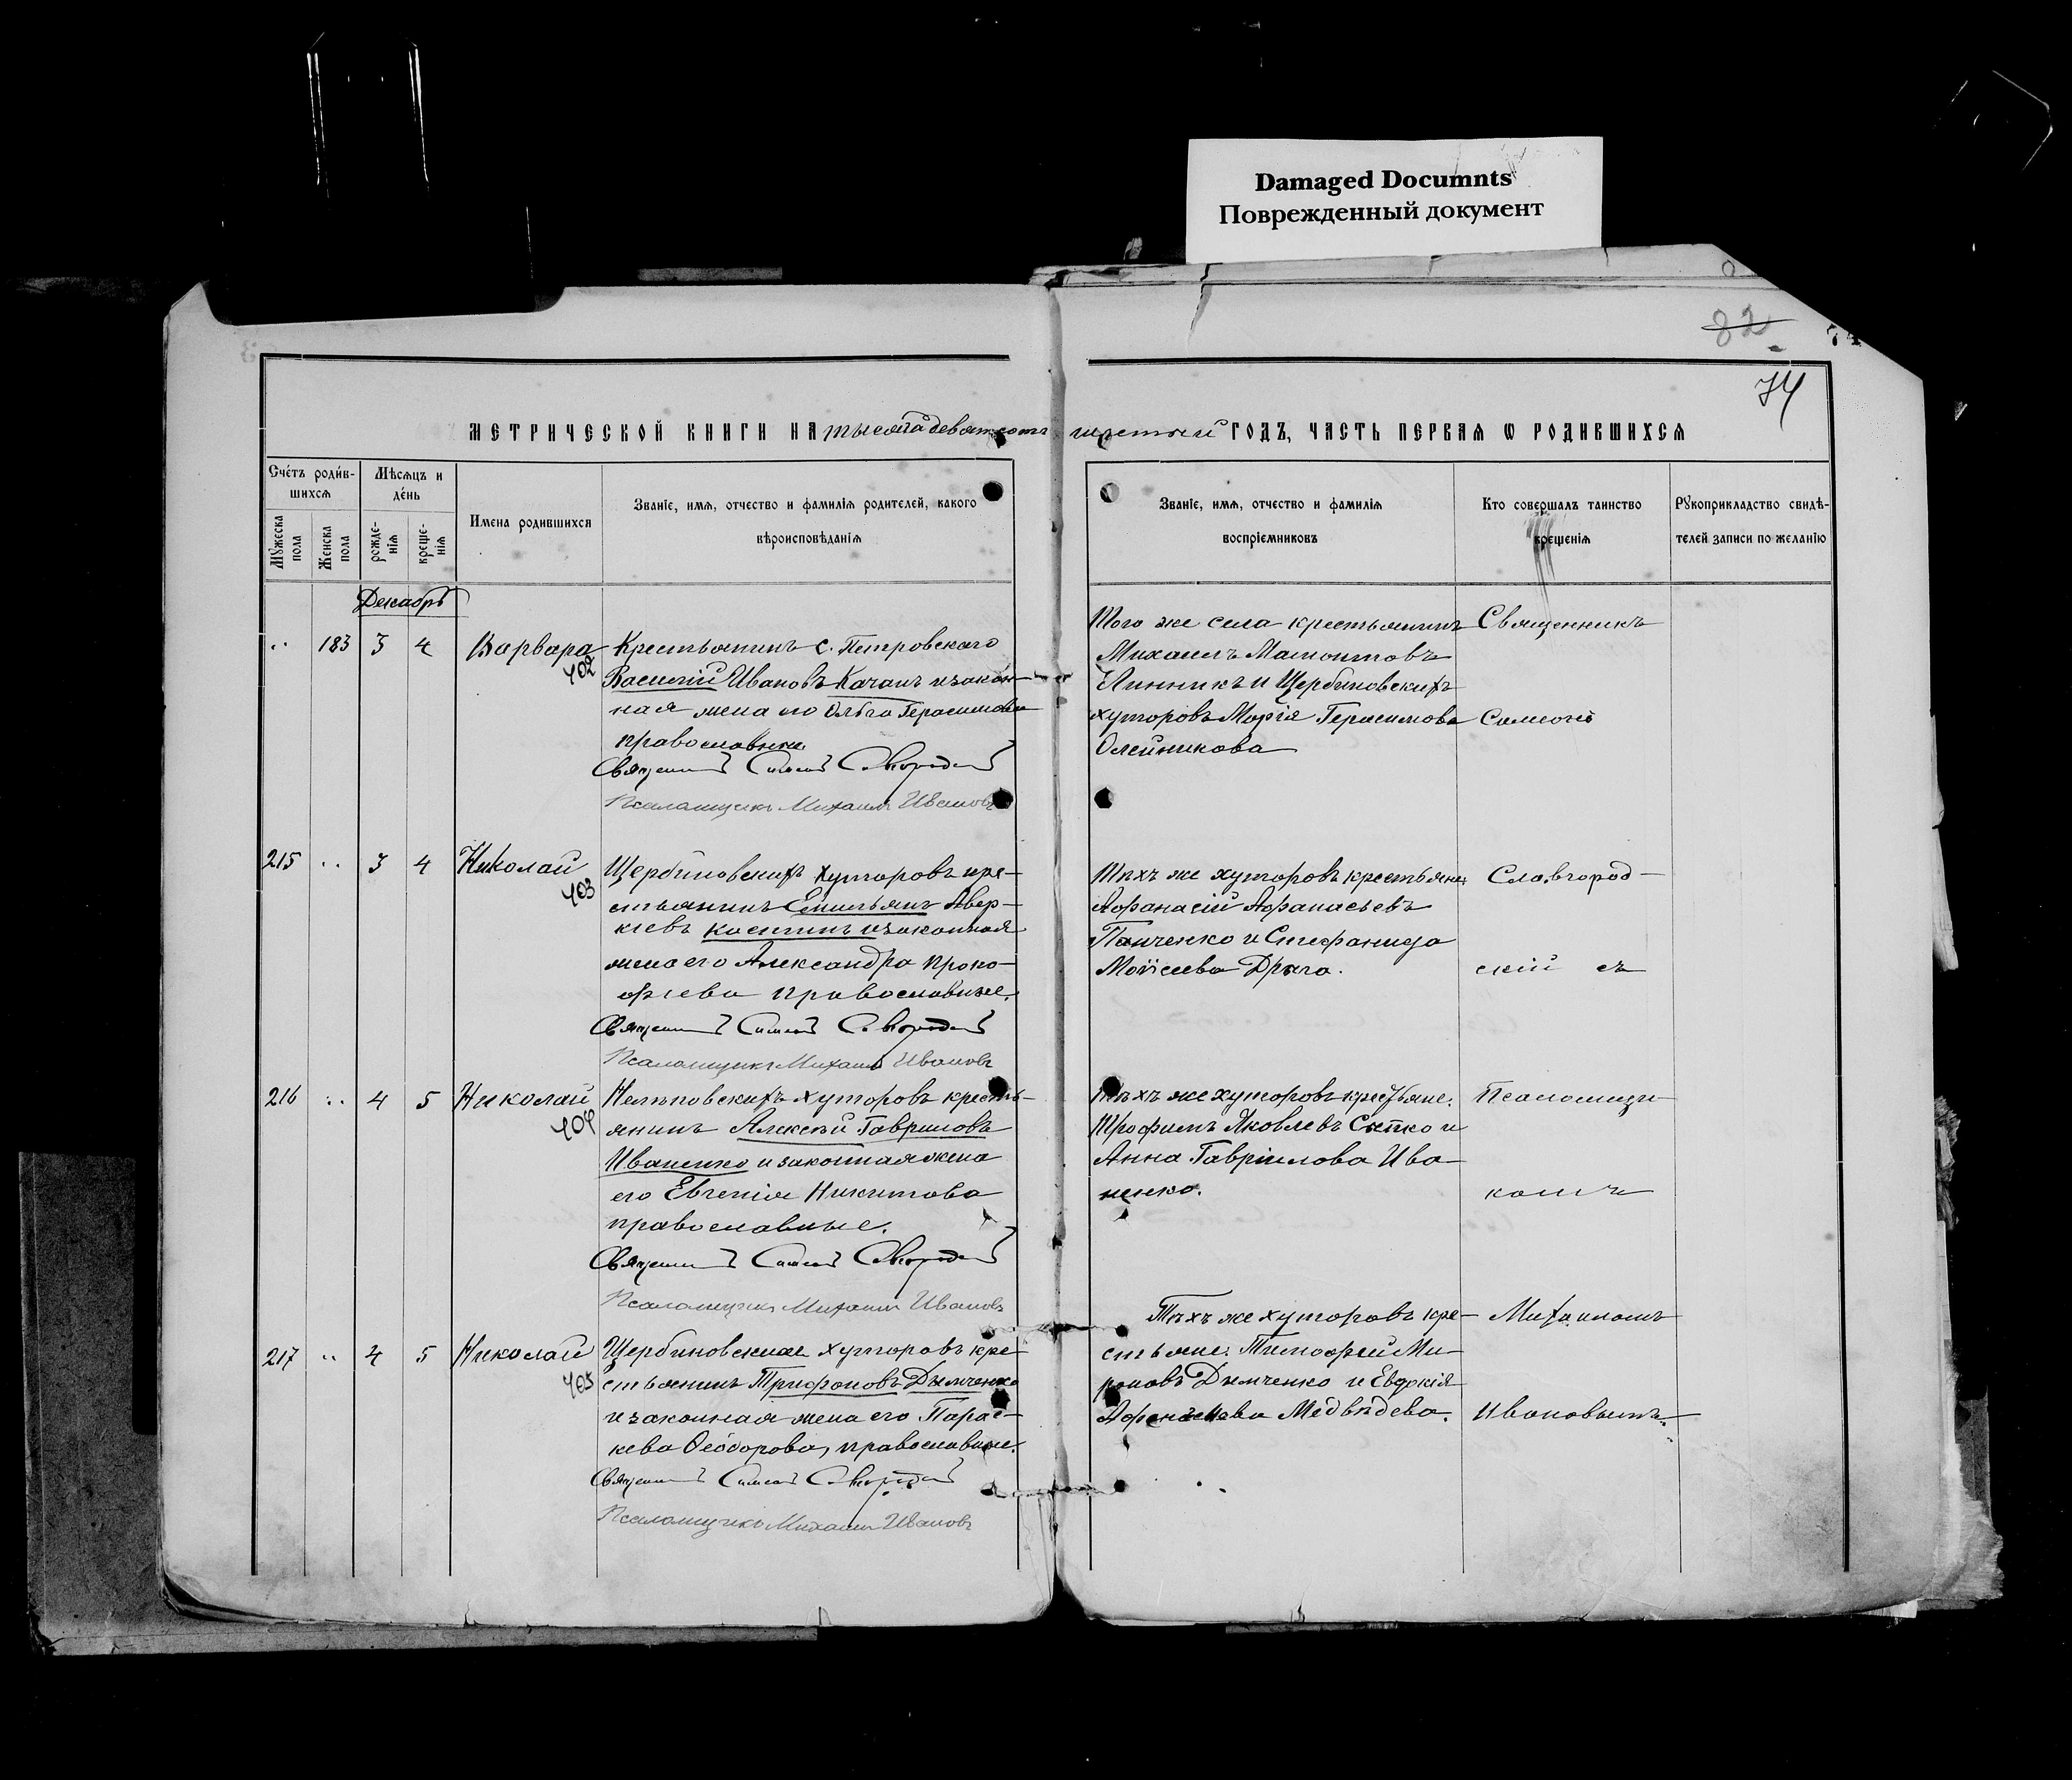 Damaged Documnts
Поврежденный документ
82
74
74
МЕТРИЧЕСКОЙ КНИГИ НА тысяча девятьсотъ шестый ГОДЪ, ЧАСТЬ ПЕРВАЯ Ѡ РОДИВШИХСЯ
Счетъ родившихся
Мѣсяцъ и день
Имена родившихся
Званіе, имя, отчество и фамилія родителей, какого вѣроисповѣданія
Мужеска пола
Женска пола
рожденія
крещенія
Званіе, имя, отчество и фамилія воспріемниковъ
Кто совершалъ таинство крещенія
Рукоприкладство свидѣтелей записи по желанію
Декабрь
183 3 4 Варвара
402
Крестьянинъ с. Петровскаго
Василій Ивановъ Качанъ и закон-
ная жена его Ольга Герасимова
православные
Священникъ Симеонъ Славгородскій
Псаломщикъ Михаилъ Ивановъ
Того же села крестьянинъ
Михаилъ Мамонтовъ
Линникъ и Щербиновскихъ
хуторовъ Марія Герасимова
Олейникова
Священникъ
Симеонъ
215 3 4 Николай
403
Щербиновскихъ хуторовъ кре-
стьянинъ Емильянъ Авер-
кіевъ Косминъ и законная
жена его Александра Проко-
фіева православные.
Священникъ Симеонъ Славгородскій
Псаломщикъ Михаилъ Ивановъ
Тѣхъ же хуторовъ крестьяне:
Афанасій Афанасьевъ
Панченко и Стефанида
Моѵсеева Драга.
Славгород-
скій съ
216 4 5 Николай
404
хуторовъ кресть-
янинъ Алексѣй Гавриловъ
Иваненко и законная жена
его Евгенія Никитова
православные.
Священникъ Симеонъ Славгородскій
Псаломщикъ Михаилъ Ивановъ
Тѣхъ же хуторовъ крестьяне:
Трофимъ Яковлевъ Сытко и
Анна Гавріилова Ива-
ненко.
Псаломщи-
комъ
217 4 5 Николай
405
Щербиновскихъ хуторовъ кре-
стьянинъ Трифоновъ Дымченко
и законная жена его Парас-
кева Ѳеодорова, православные.
Священникъ Симеонъ Славгородскій
Псаломщикъ Михаилъ Ивановъ
Тѣхъ же хуторовъ кре-
стьяне: Тимофей Ми-
роновъ Дымченко и Евдокія
Афанасіева Медвѣдева.
Михаиломъ
Ивановымъ.